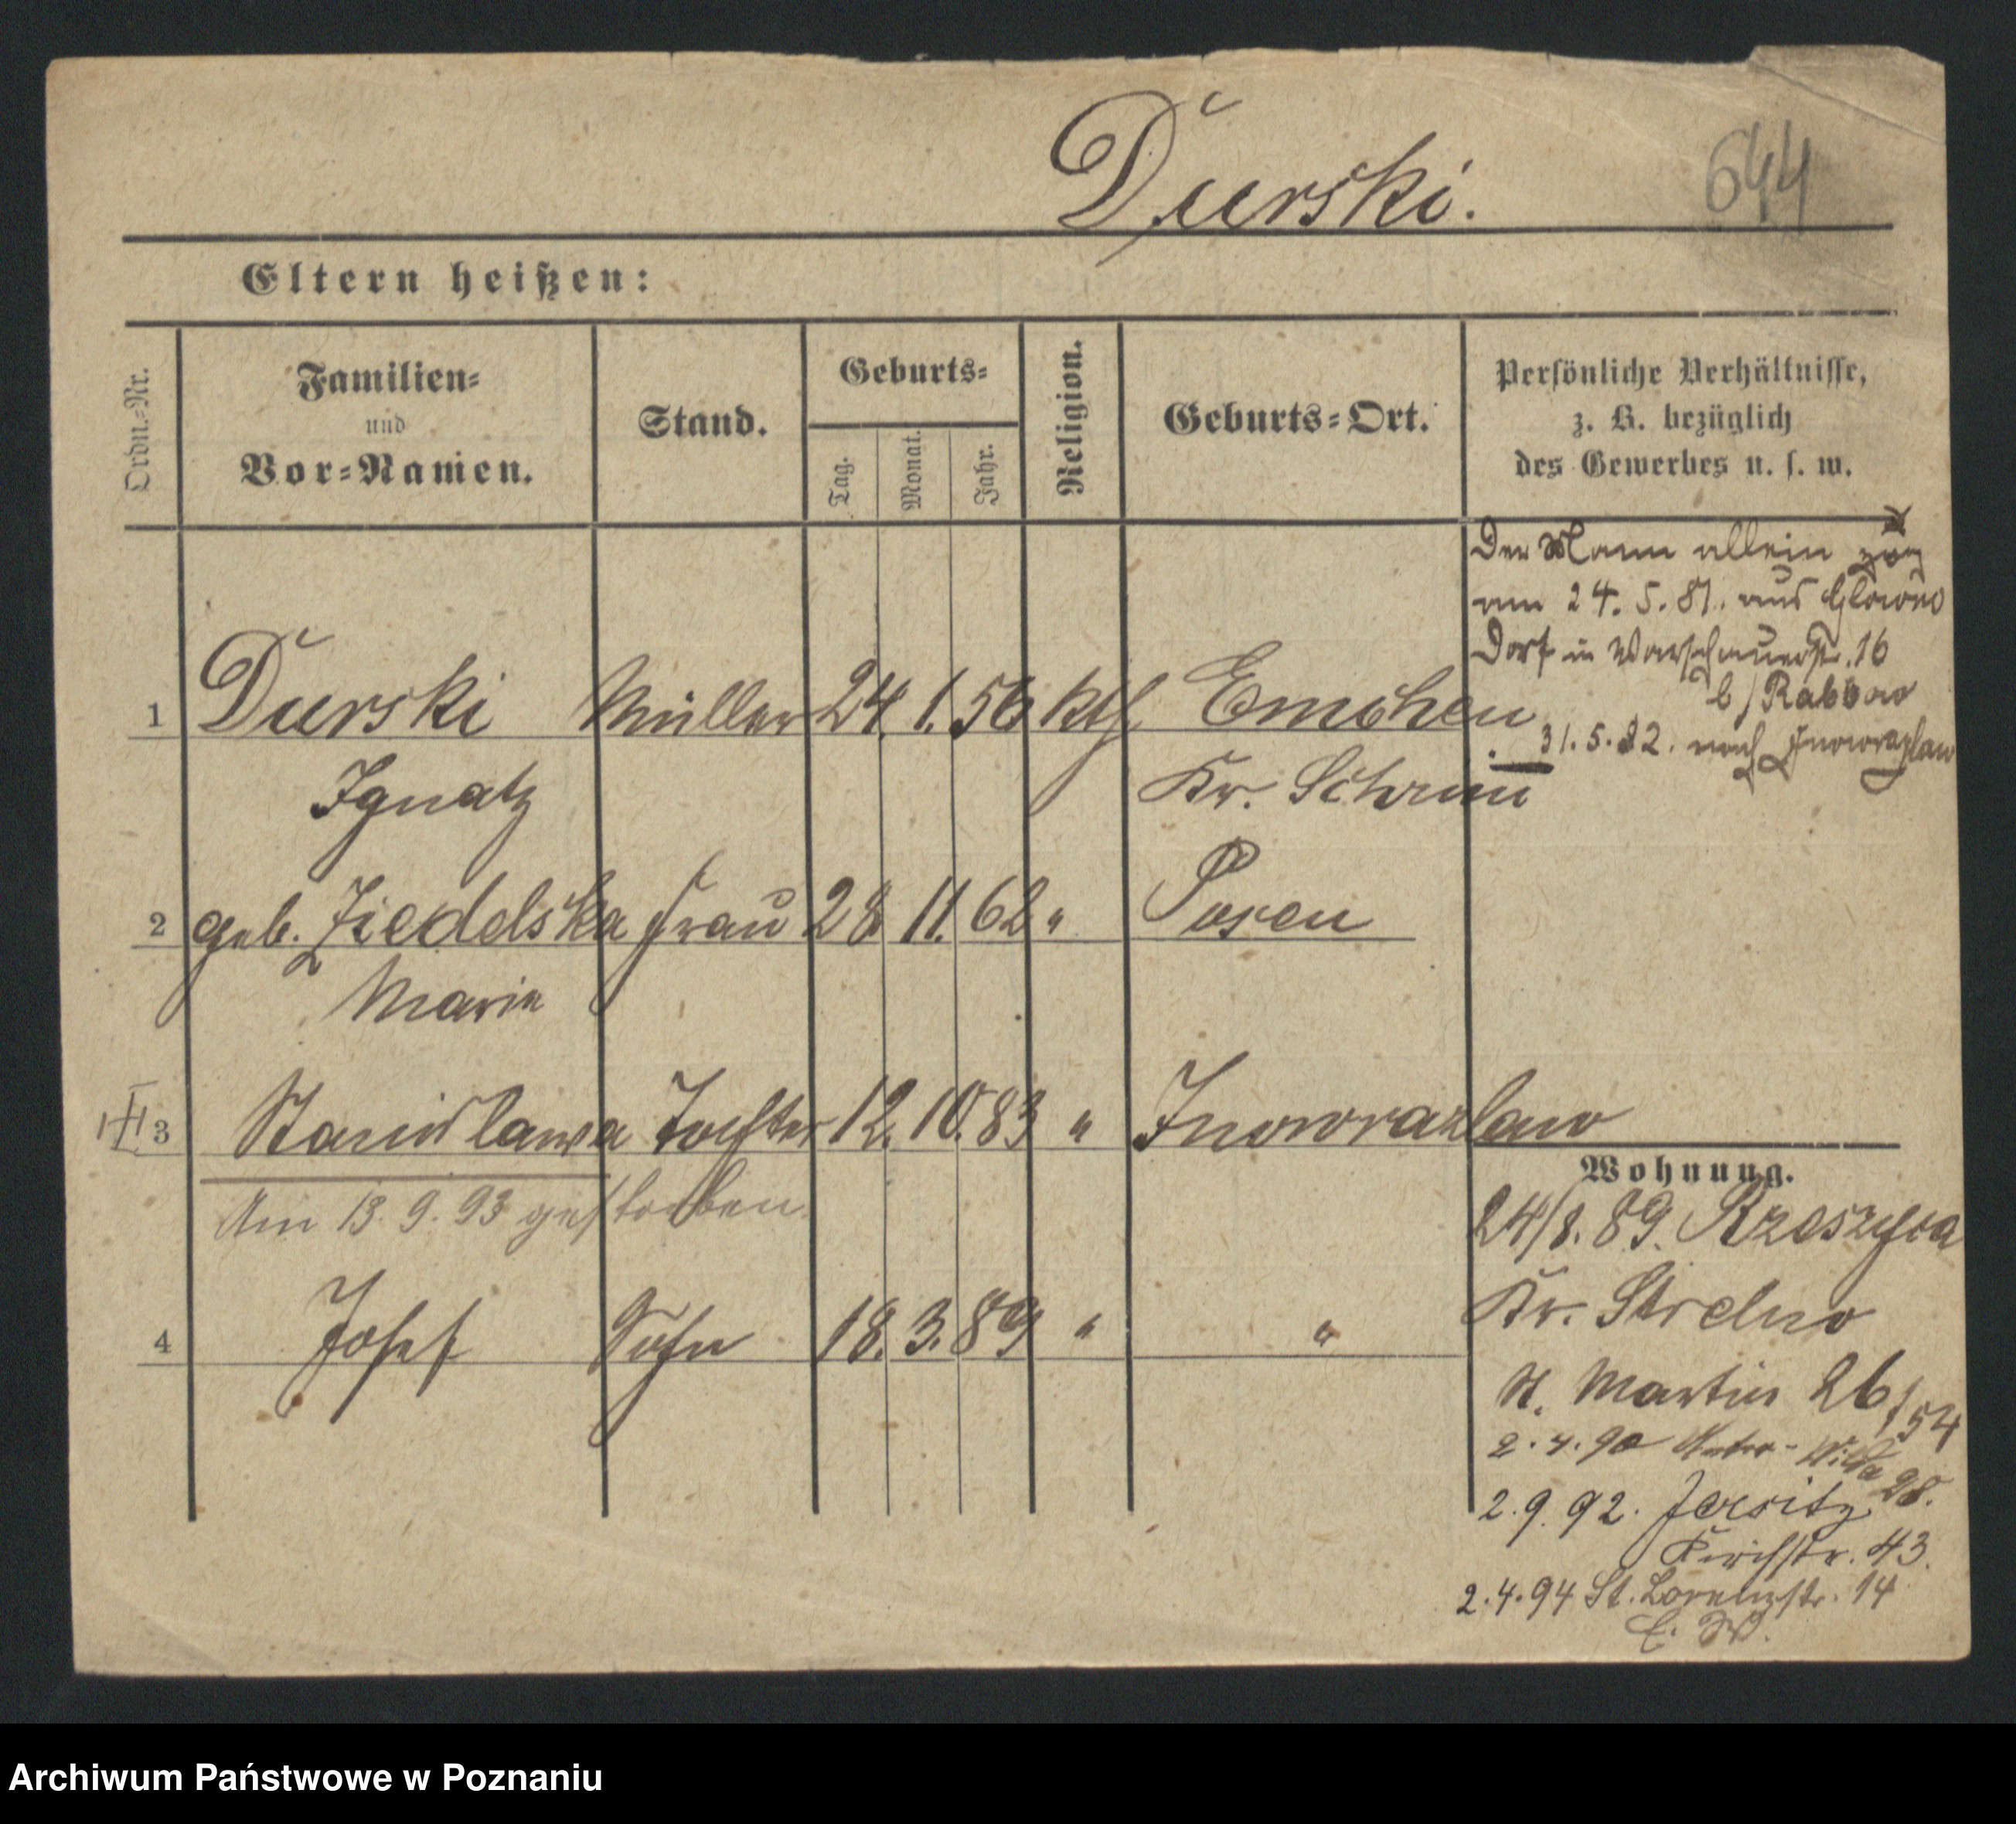 Durski.
644
Eltern heißen:
Ordn.-Nr.
Familien-
und
Vor-Namen.
Stand.
Geburts-
Tag.
Monat.
Jahr.
Religion.
Geburts-Ort.
Persönliche Verhältnisse,
z. B. bezüglich
des Gewerbes u. s. w.
Der Mann allein zog
am 24. 5. 81. aus Glowno
Dorf in Warschauerstr. 16
b/ Rabbow
31. 5. 82. nach Inowrazlaw
1 Durski Müller 24. 1. 56 kth Emchen
Ignatz Kr. Schrimm
2 geb. Ziedelska Frau 28 11. 62 " Posen
Marie
3 Stanislawa Tochter 12. 10. 83 " Inowrazlaw
Am 13. 9. 93 gestorben.
4 Josef Sohn 18. 3. 89 " "
Wohnung.
24/8. 89.
Kr. Strelno
St. Martin 26/54
2. 4. 90 Unter-Wilda 28.
2. 9. 92. Jersitz
Kirchstr. 43.
2. 4. 94 St. Lorenzstr. 14
Archiwum Państwowe w Poznaniu